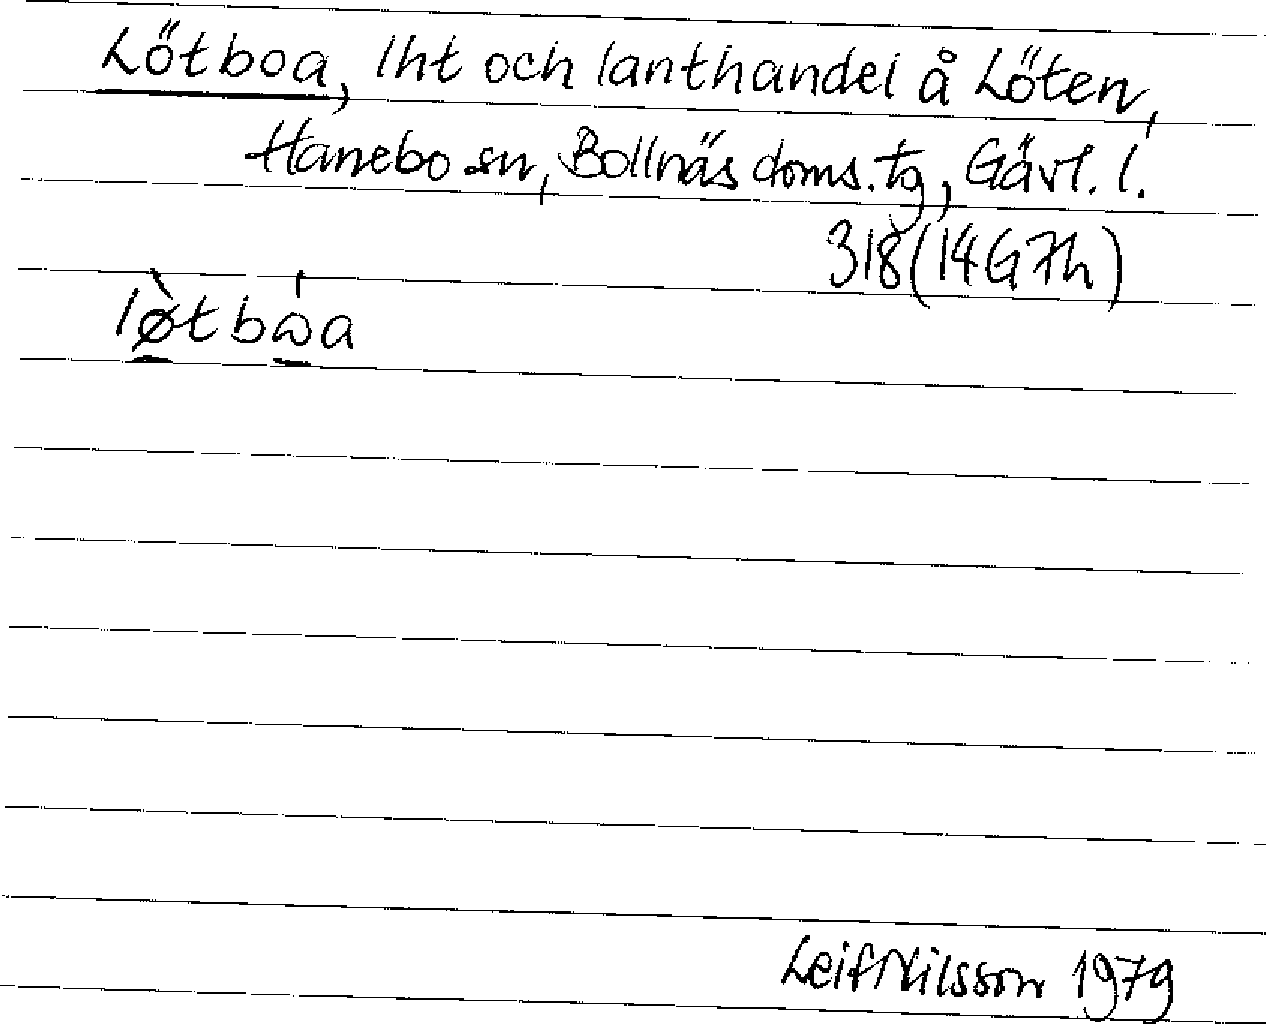 Lötboa, lht och lanthandel å Löten,
Hanebo sn, Bollnäs doms. tg, Gävl. l.
318 (14G7h)
lø̀tbὼa
Leif Nilsson 1979